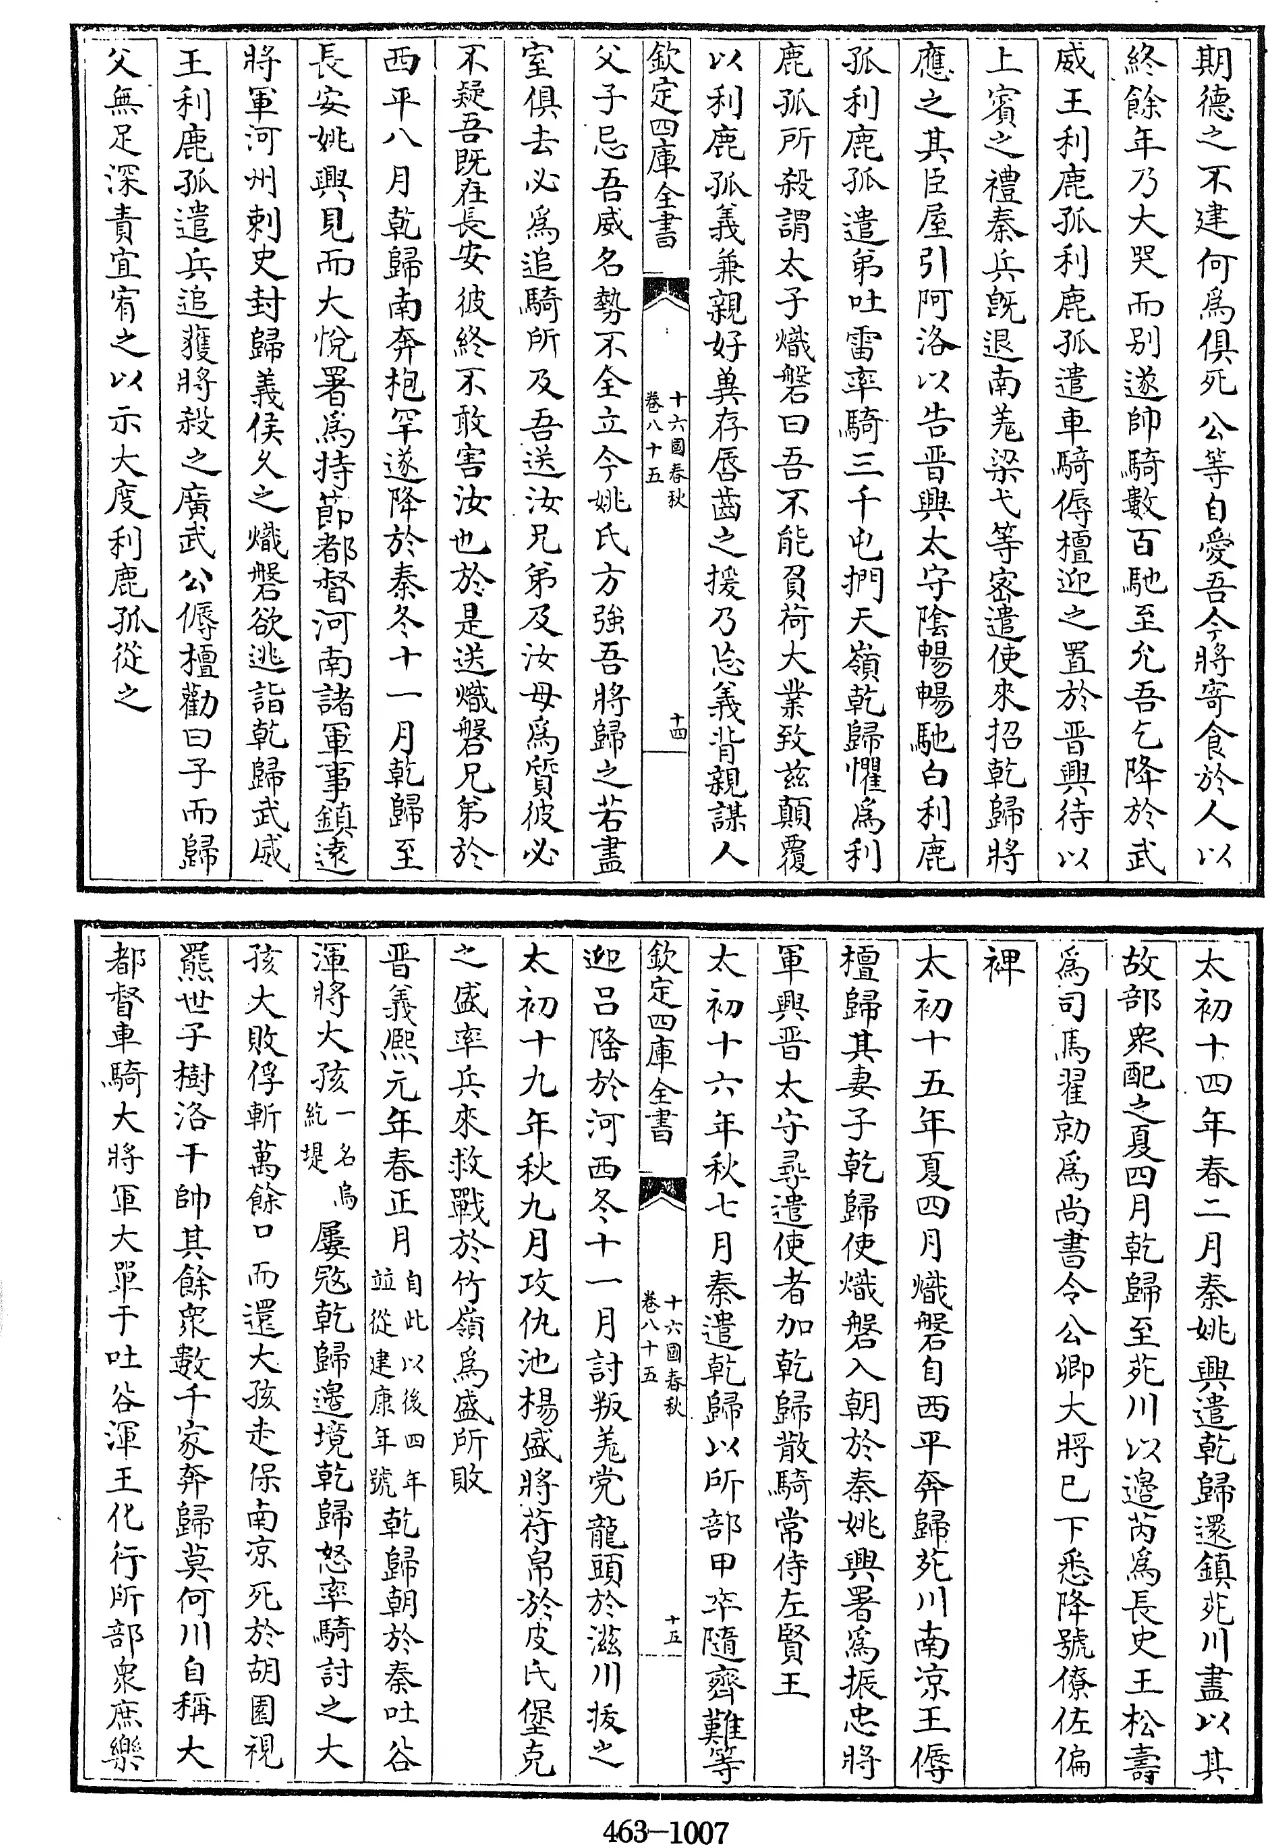 期德之不建何爲俱死公等自愛吾今將寄食於人以
終餘年乃大哭而别遂帥騎數百馳至允吾乞降於武
威王利鹿孤利鹿孤遣車騎傉檀迎之置於晉興待以
上賓之禮秦兵旣退南羌梁弋等密遣使來招乾歸將
應之其臣屋引阿洛以告晉興太守陰暢暢馳白利鹿
孤利鹿孤遣弟吐雷率騎三千屯捫天嶺乾歸懼爲利
鹿孤所殺謂太子熾磐曰吾不能負荷大業致兹顛覆
以利鹿孤義兼親好兾存唇齒之援乃忘義背親謀人
欽定四庫全書
十六國春秋
卷八十五
十四
父子忌吾威名勢不全立今姚氏方強吾將歸之若盡
室俱去必爲追騎所及吾送汝兄弟及汝母爲質彼必
不疑吾既在長安彼終不敢害汝也於是送熾磐兄弟於
西平八月乾歸南奔枹罕遂降於秦冬十一月乾歸至
長安姚興見而大悅署爲持節都督河南諸軍事鎮遠
將軍河州刺史封歸義侯久之熾磐欲逃詣乾歸武威
王利鹿孤遣兵追獲將殺之廣武公傉檀勸曰子而歸
父無足深責宜宥之以示大度利鹿孤從之
太初十四年春二月秦姚興遣乾歸還鎮苑川盡以其
故部衆配之夏四月乾歸至苑川以邉芮爲長史王松壽
爲司馬翟勍爲尚書令公卿大將已下悉降號僚佐偏
裨
太初十五年夏四月熾磐自西平奔歸苑川南凉王傉
檀歸其妻子乾歸使熾磐入朝於秦姚興署爲振忠將
軍興晉太守尋遣使者加乾歸散騎常侍左賢王
太初十六年秋七月秦遣乾歸以所部甲卒隨齊難等
欽定四庫全書
十六國春秋
卷八十五
十五
迎吕隆於河西冬十一月討叛羌党龍頭於滋川拔之
太初十九年秋九月攻仇池楊盛將苻帛於皮氏堡克
之盛率兵來救戰於竹嶺爲盛所敗
晉義熈元年春正月自此以後四年並從建康年號乾歸朝於秦吐谷
渾將大孩一名烏紇堤屢宼乾歸邉境乾歸怒率騎討之大
孩大敗俘斬萬餘口而還大孩走保南凉死於胡園視
羆世子樹洛干帥其餘衆數千家奔歸莫何川自稱大
都督車騎大將軍大單于吐谷渾王化行所部衆庶樂
463-1007